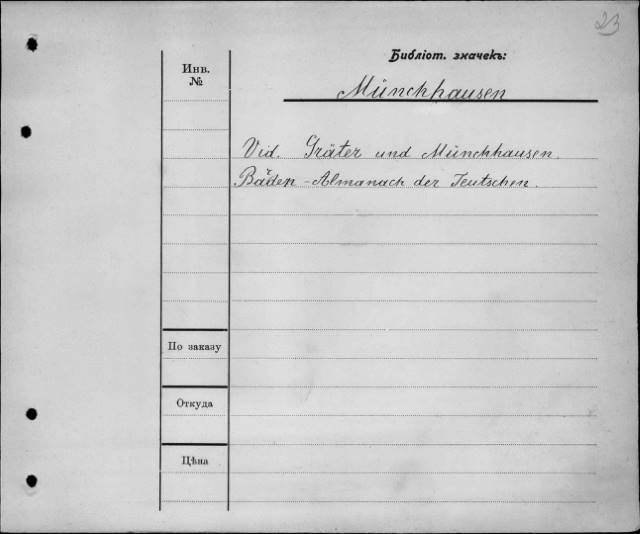 23
Библіот. значекъ:
Инв.
№
Münchhausen
Vid. Gräter und Münchhausen.
Barden-Almanach der Teutschen.
По заказу
Откуда
Цѣна